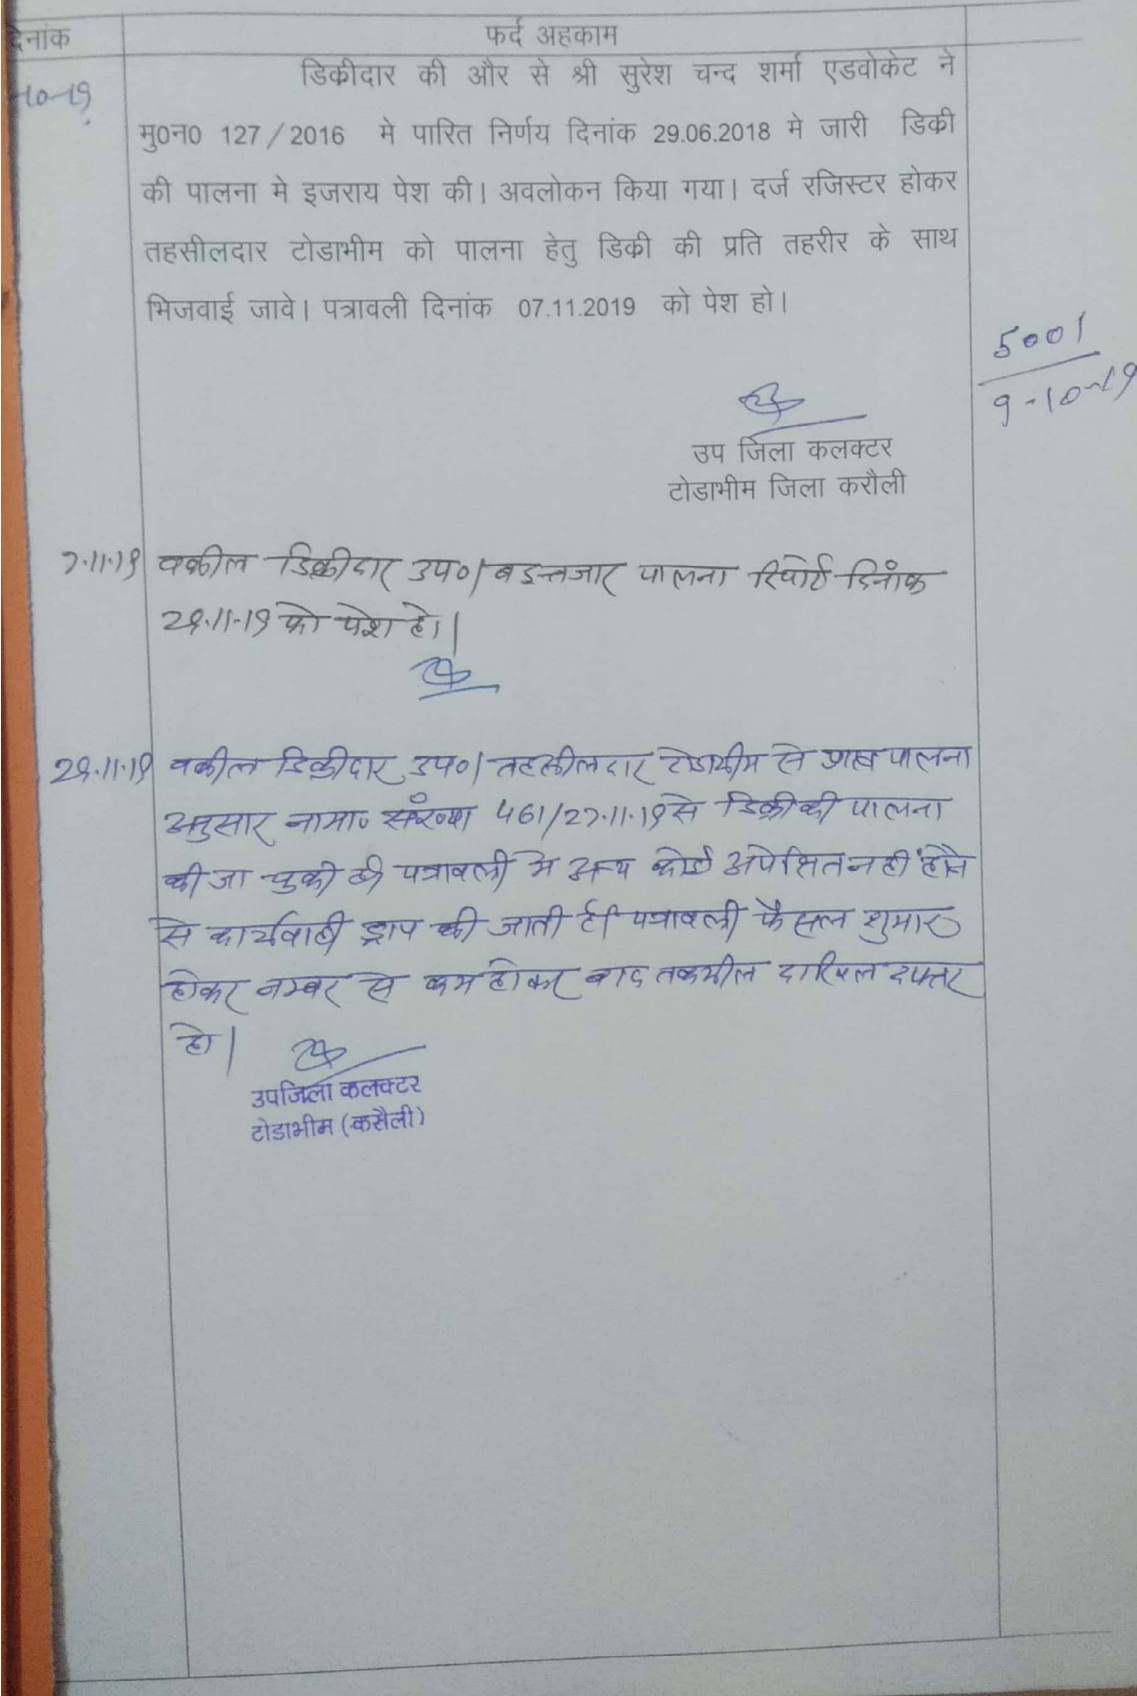 दिनांक
फर्द अहकाम
-10-19
डिकीदार की और से श्री सुरेश चन्द शर्मा एडवोकेट ने
मु0न0 127/2016 मे पारित निर्णय दिनांक 29.06.2018 मे जारी डिकी
की पालना मे इजराय पेश की। अवलोकन किया गया। दर्ज रजिस्टर होकर
तहसीलदार टोडाभीम को पालना हेतु डिकी की प्रति तहरीर के साथ
भिजवाई जावे। पत्रावली दिनांक 07.11.2019 को पेश हो।
5001
9-10-19
उप जिला कलक्टर
टोडाभीम जिला करौली
7.11.19 वकील डिक्रीदार उप०। बइन्तजार पालना रिपोर्ट दिनांक
29.11.19 को पेश हो।
29.11.19 वकील डिक्रीदार उप०। तहसीलदार टोडाभीम से प्राप्त पालना
अनुसार नामा० संख्या 461/27.11.19 से डिक्री की पालना
की जा चुकी है। पत्रावली मे अन्य कोई अपेक्षित नही होने
से कार्यवाही ड्राप की जाती है। पत्रावली फैसल शुमार
होकर नम्बर से कम होकर बाद तकमील दाखिल दफ्तर
हो।
उपजिला कलक्टर
टोडाभीम (करौली)